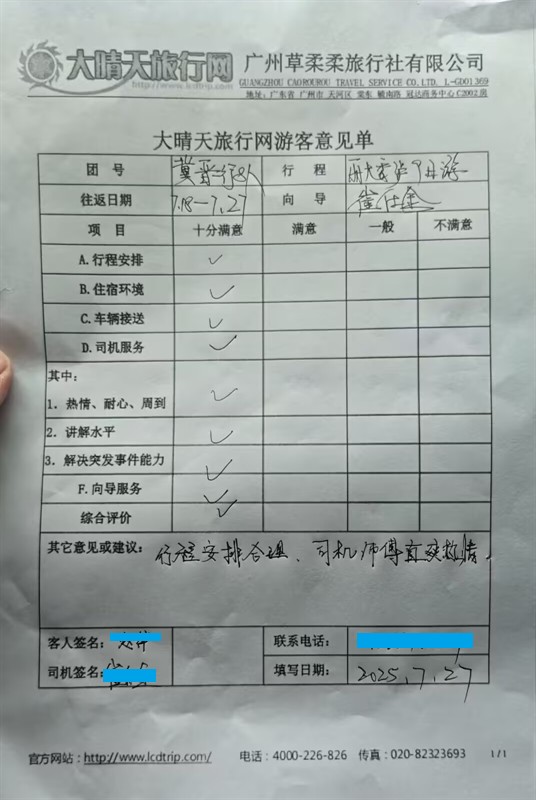 大晴天旅行网
http://www.lcdtrip.com
广州草柔柔旅行社有限公司
GUANGZHOU CAOROUROU TRAVEL SERVICE CO., LTD. L-GD01369
地址：广东省 广州市 天河区 棠东 毓南路 冠达商务中心C2002房
大晴天旅行网游客意见单
团 号 行 程
往返日期 7.18-7.27 向 导
项 目 十分满意 满意 一般 不满意
A.行程安排 ✓
B.住宿环境 ✓
C.车辆接送 ✓
D.司机服务 ✓
其中：
1．热情、耐心、周到 ✓
2．讲解水平 ✓
3．解决突发事件能力 ✓
F.向导服务 ✓
综合评价 ✓
其它意见或建议： 行程安排合理、司机师傅直爽热情。
客人签名： 联系电话：
司机签名： 填写日期： 2025.7.27
官方网站：http://www.lcdtrip.com/ 电话：4000-226-826 传真：020-82323693 1/1